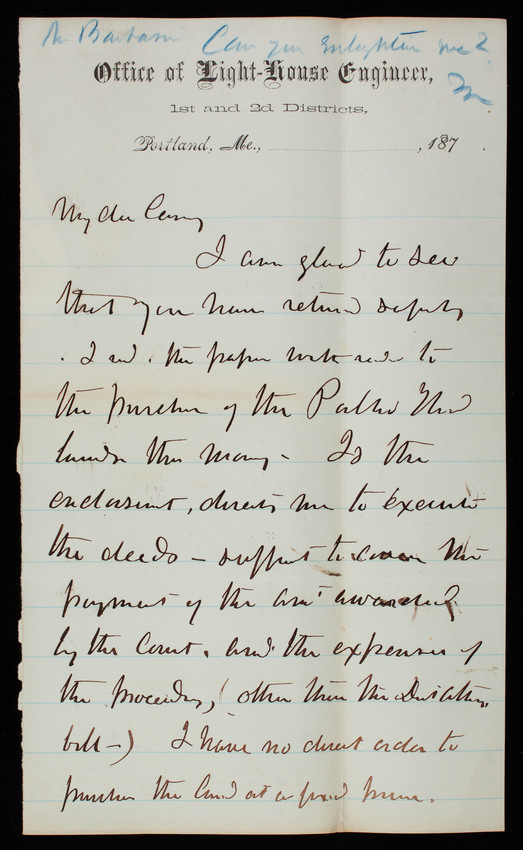 Can you enlighten me?
Office of Light-House Engineer,
1st and 2d Districts,
Portland, Me., , 187 .
My dear Casey
I am glad to see
that you have returned safely
. I recd. the paper with to
the purchase of the
lands this . Is the
endorsement, directing me to execute
the deeds - sufficient to cover the
payment of the amt awarded
by the Court, and the expenses of
the proceedings, (other than the
bill -) I have no direct order to
purchase the land at a fixed price.